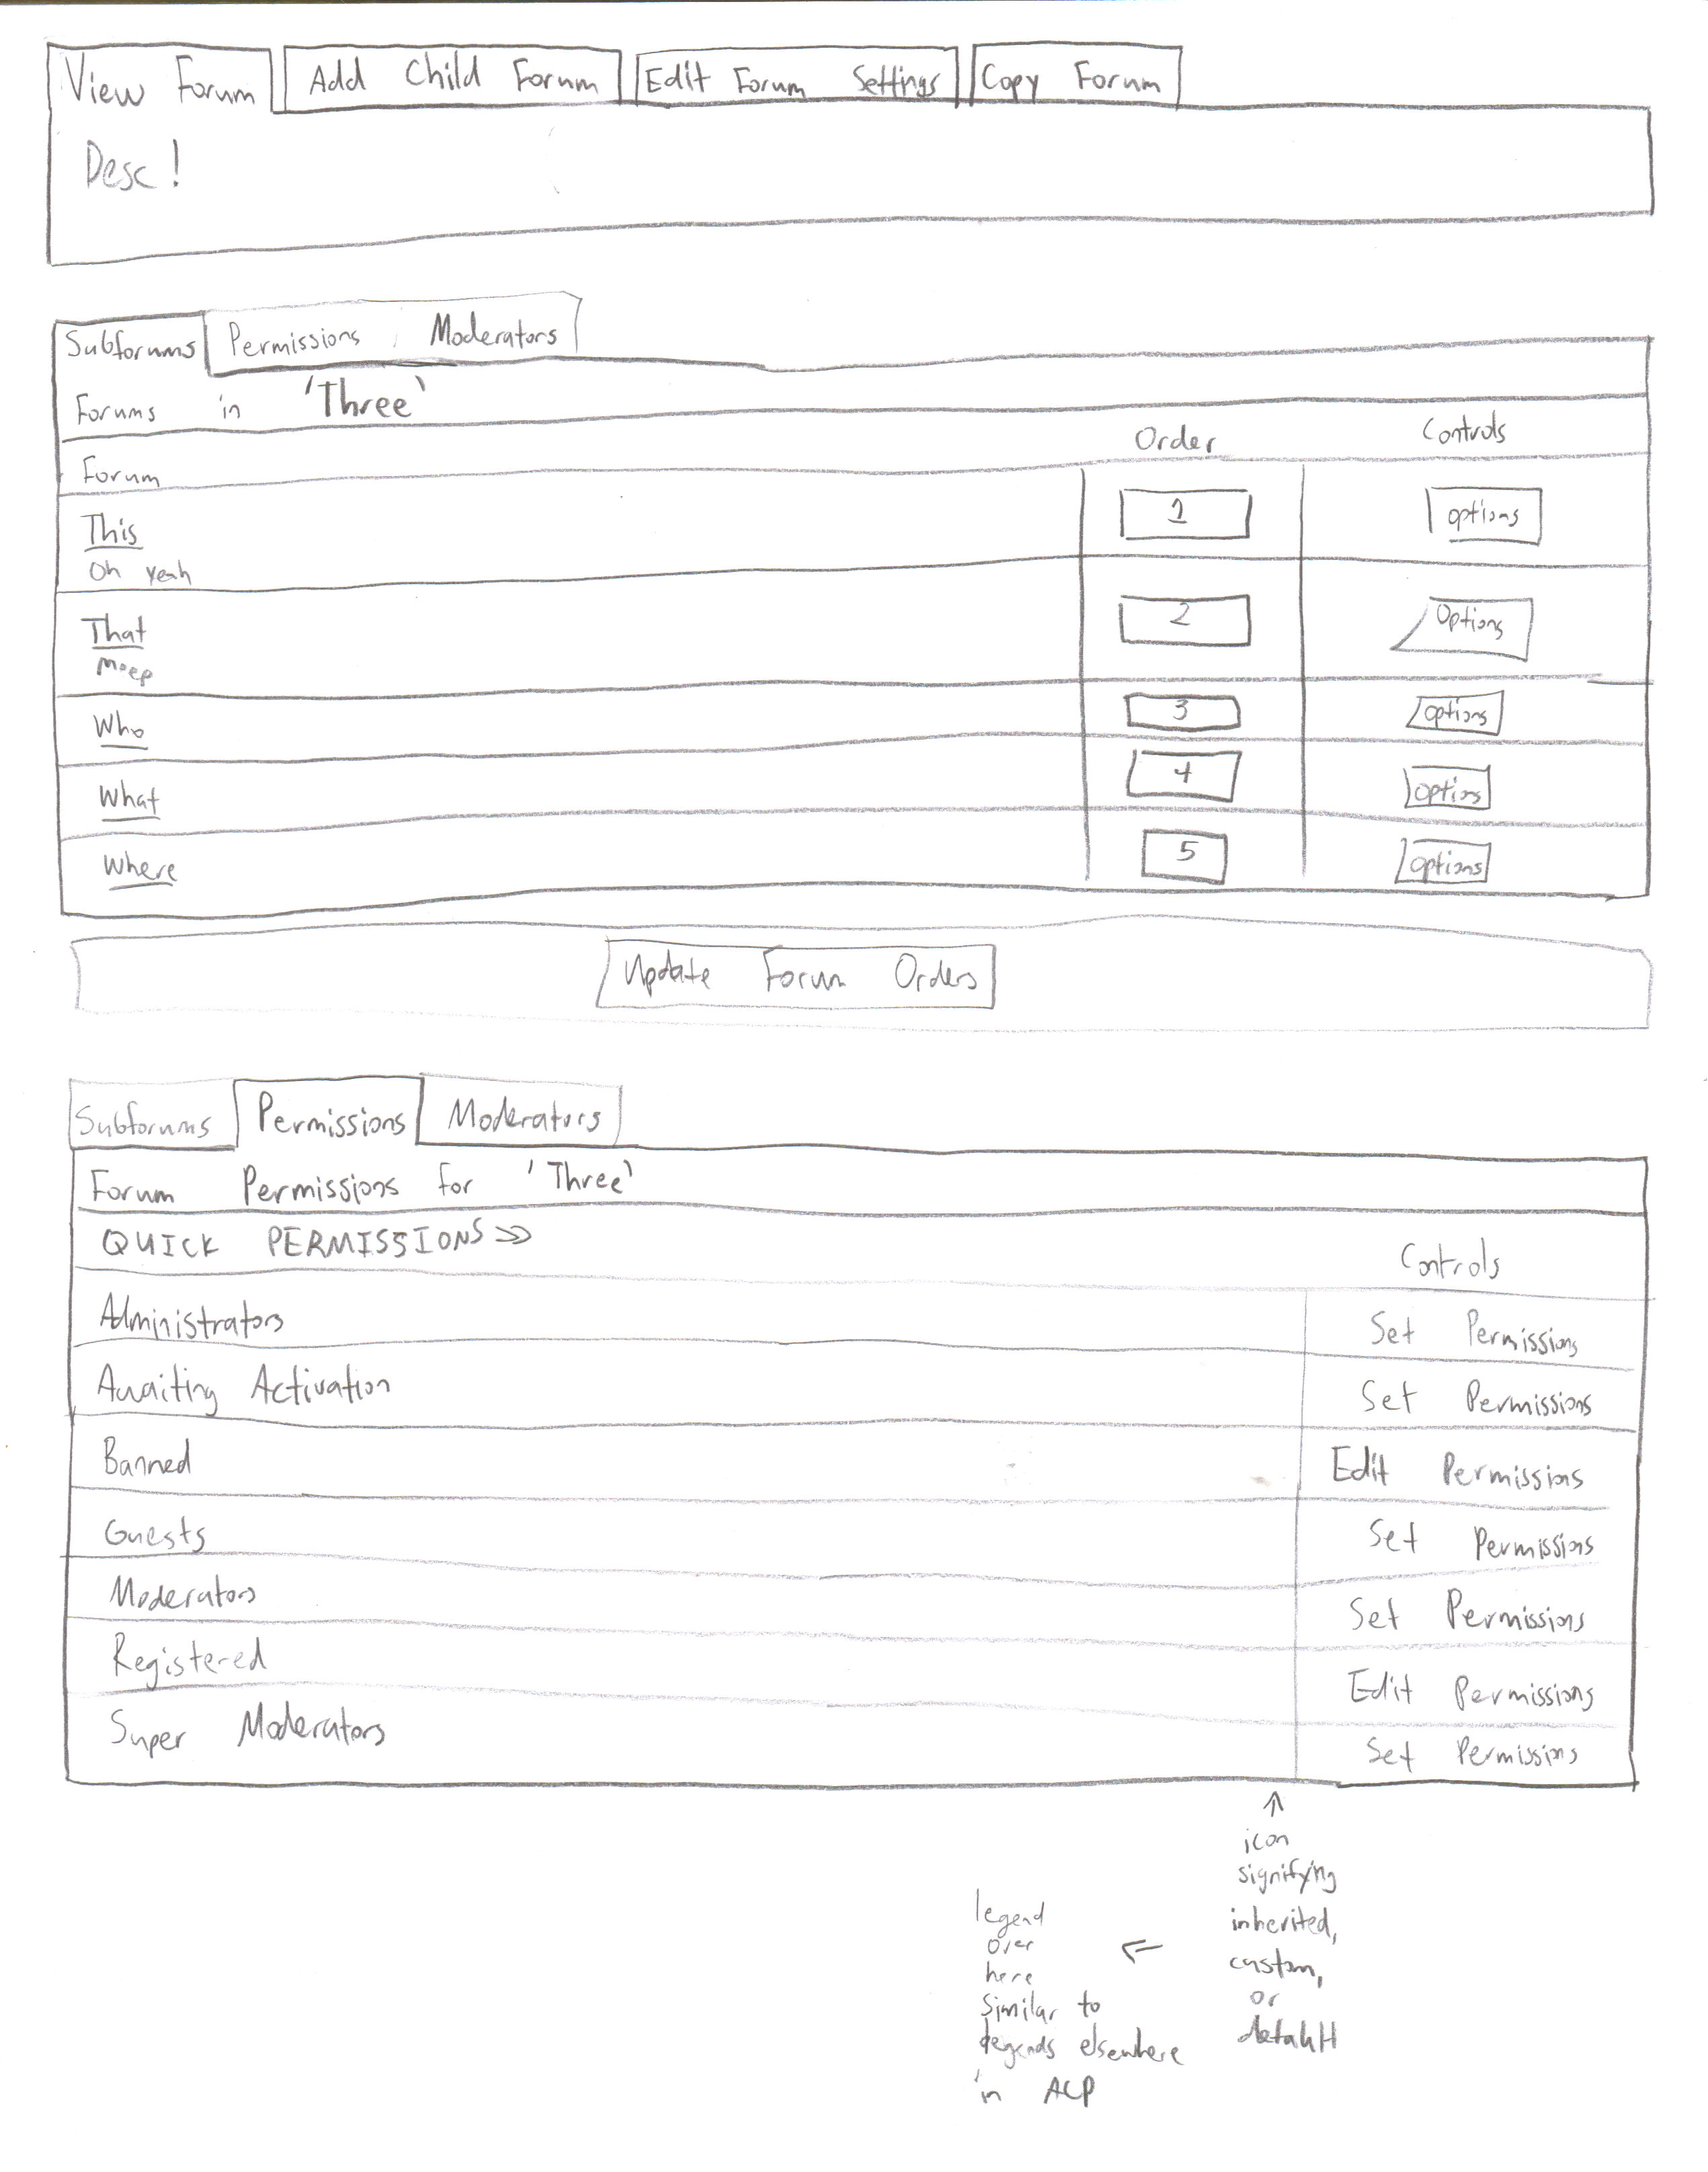 View Forum Add Child Forum Edit Forum Settings Copy Forum
Desc!
Subforums Permissions Moderators
Forums in 'Three'
Forum Order Controls
This 1 options
Oh yeah
That 2 Options
Moep
Who 3 options
What 4 options
Where 5 options
Update Forum Orders
Subforums Permissions Moderators
Forum Permissions for 'Three'
QUICK PERMISSIONS >> Controls
Administrators Set Permissions
Awaiting Activation Set Permissions
Banned Edit Permissions
Guests Set Permissions
Moderators Set Permissions
Registered Edit Permissions
Super Moderators Set Permissions
↑
icon
signifying
inherited,
custom,
or
default
←
legend
over
here
similar to
legends elsewhere
in ACP